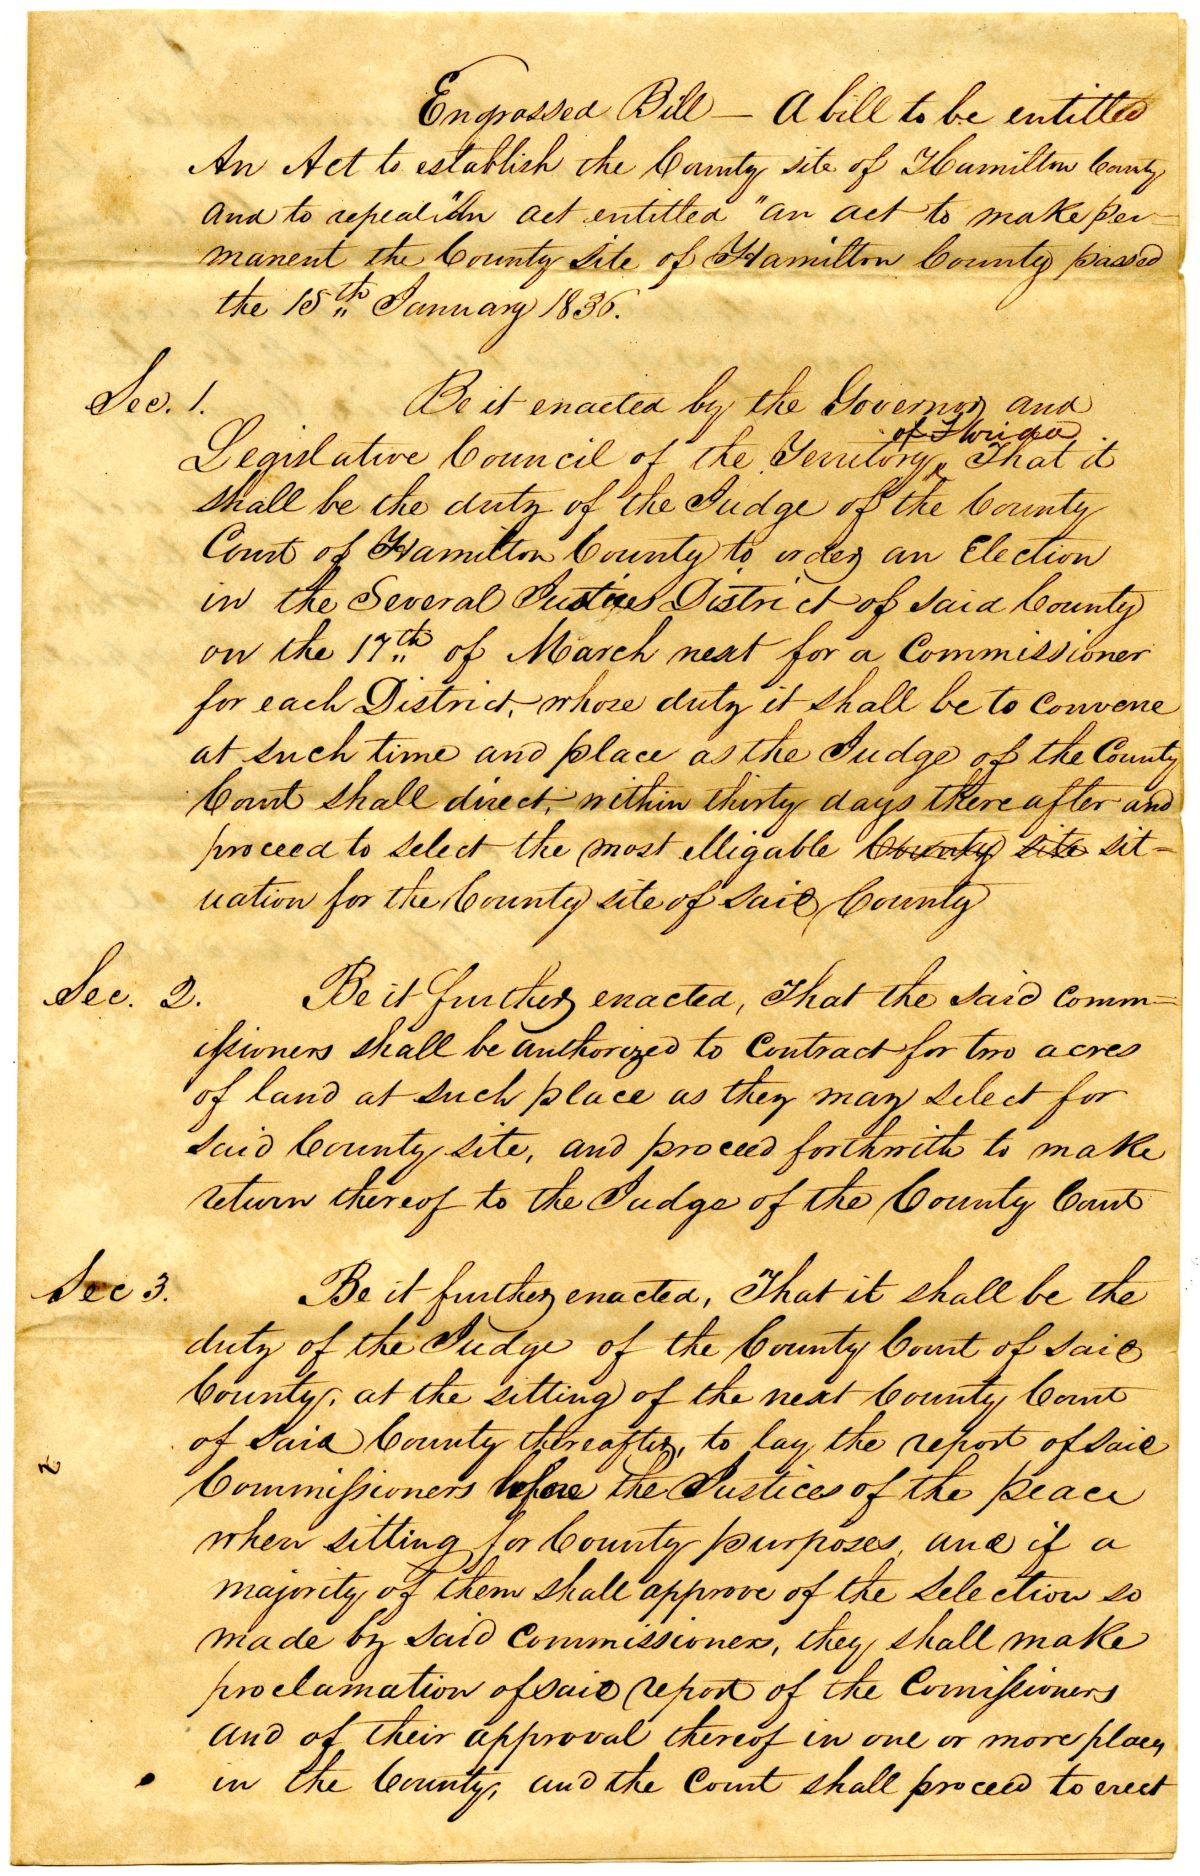 Engrossed Bill — A bill to be entitled
An Act to establish the County site of Hamilton County
and to repeal "An act entitled "an act to make per-
manent the County site of Hamilton County passed
the 15th January 1836.
Sec. 1. Be it enacted by the Governor and
of Florida
Legislative Council of the Territory, That it
shall be the duty of the Judge of the County
Court of Hamilton County to order an Election
in the Several Justices District of said County
on the 17th of March next for a Commissioner
for each District, whose duty it shall be to convene
at such time and place as the Judge of the County
Court shall direct, within thirty days thereafter and
proceed to select the most elligable County site sit=
uation for the County site of said County
Sec. 2. Be it further enacted, That the said Comm=
issioners shall be authorized to contract for two acres
of land at such place as they may select for
said County site, and proceed forthwith to make
return thereof to the Judge of the County Court
Sec 3. Be it further enacted, That it shall be the
duty of the Judge of the County Court of said
County, at the sitting of the next County Court
of said County thereafter, to lay the report of said
Commissioners before the Justices of the peace
when sitting for County purposes, and if a
majority of them shall approve of the selection so
made by said Commissioners, they shall make
proclamation of said report of the Comissioners
and of their approval thereof in one or more places
in the County, and the Court shall proceed to erect